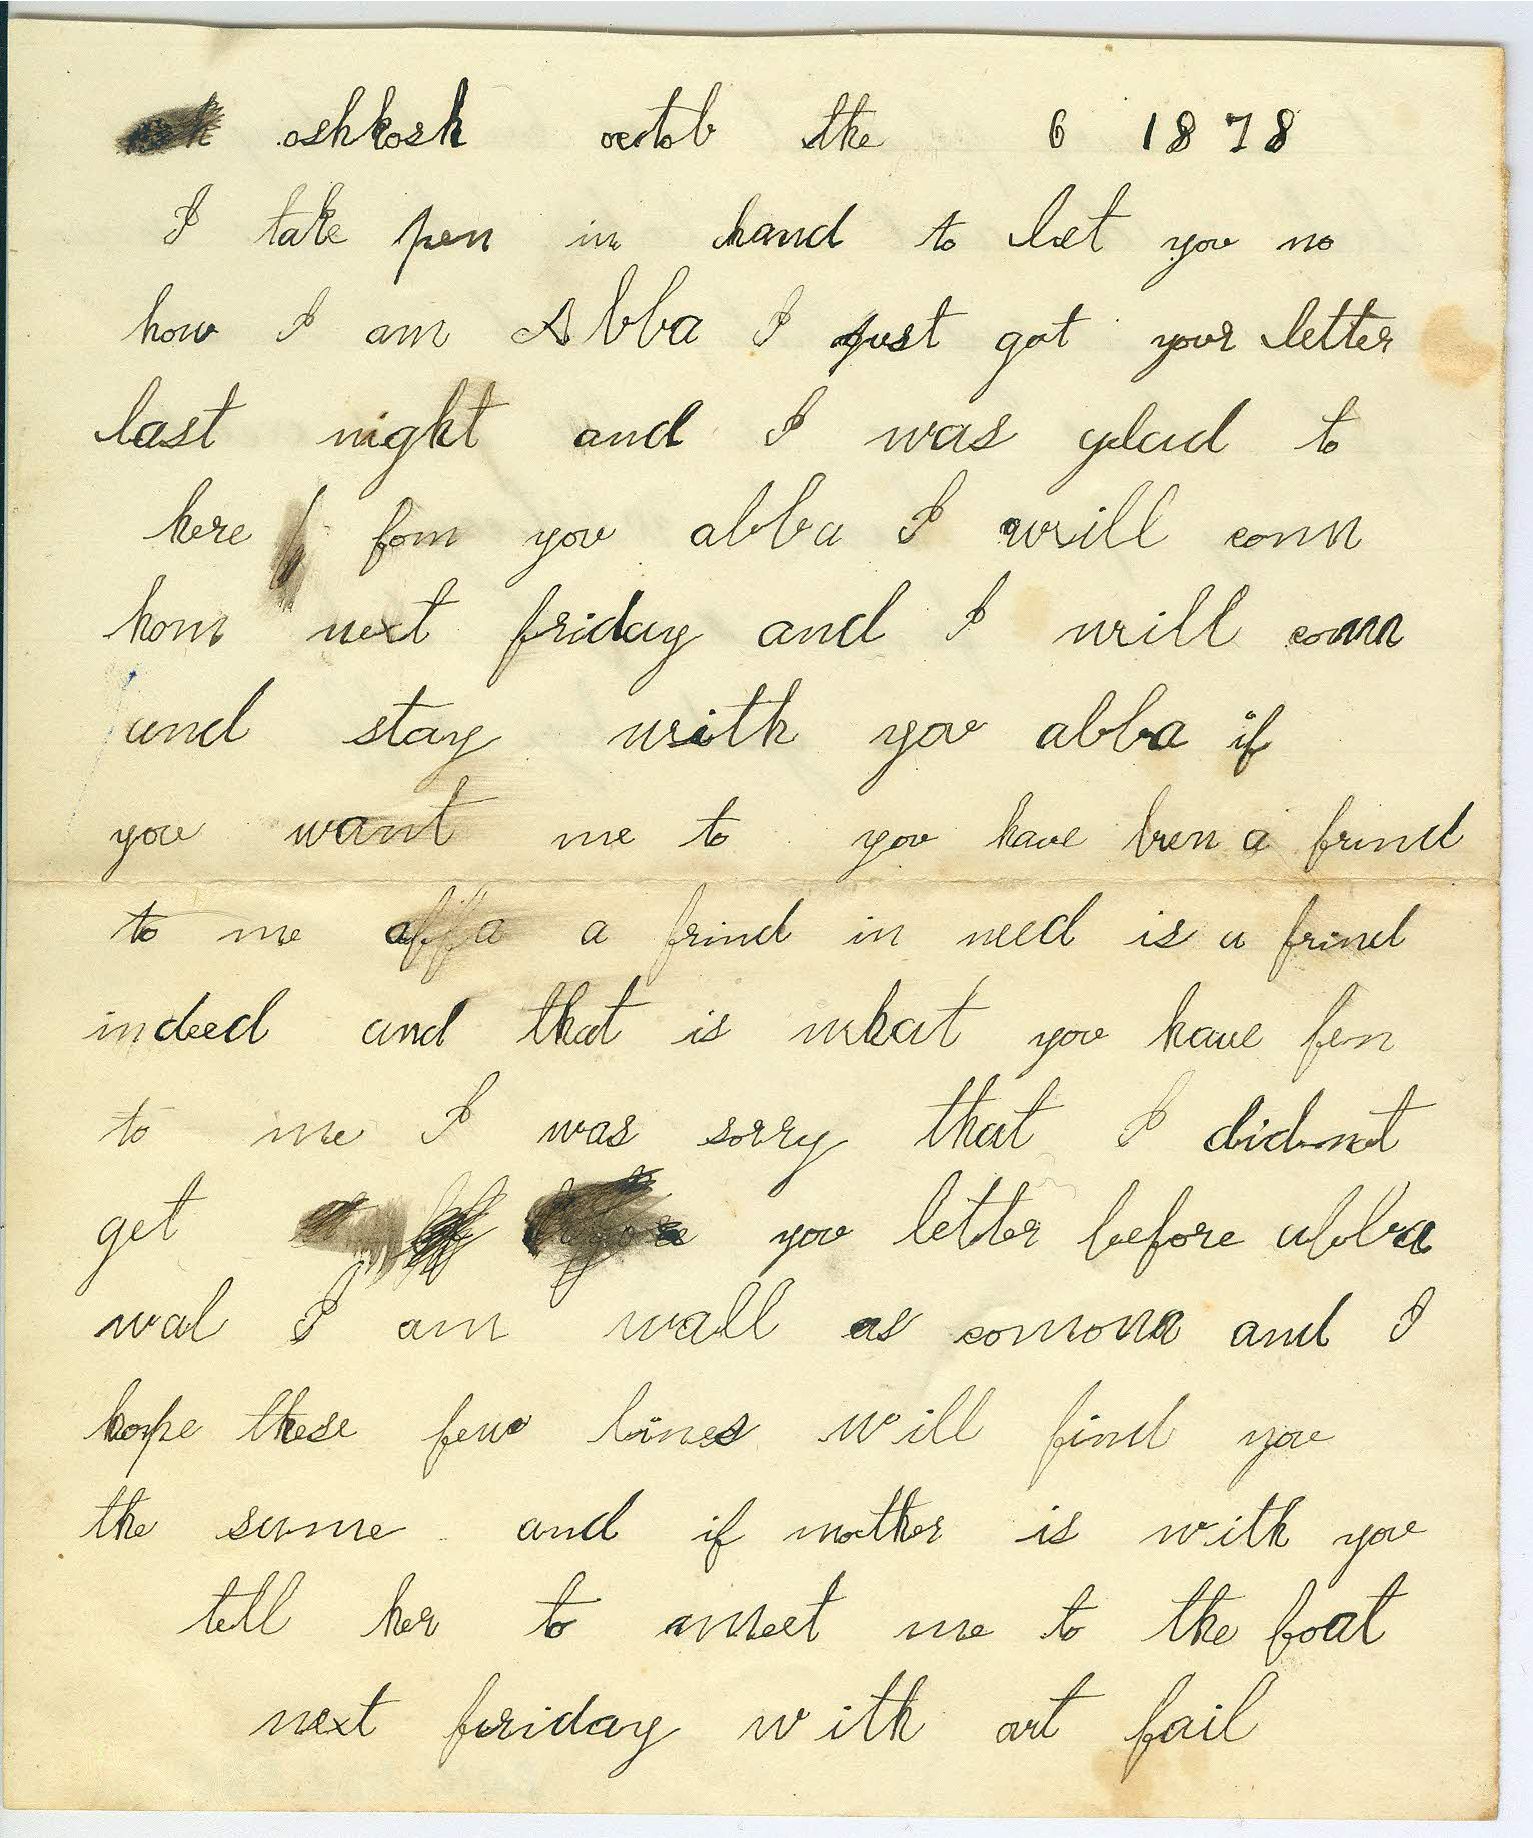 oshkosh octob the 6 1878
I take pen in hand to let you no
how I am Abba I just got your letter
last night and I was glad to
here fom you abba I will comn
hom next friday and I will comn
and stay with you abba if
you want me to you have bren a frind
to me affa a frind in need is a frind
indeed and that is what you have fen
to me I was sorry that I did not
get you letter before abbra
wal I am wall as comona and I
hope these few lines will find you
the same and if mother is with you
tell her to meet me to the foat
next friday with out fail